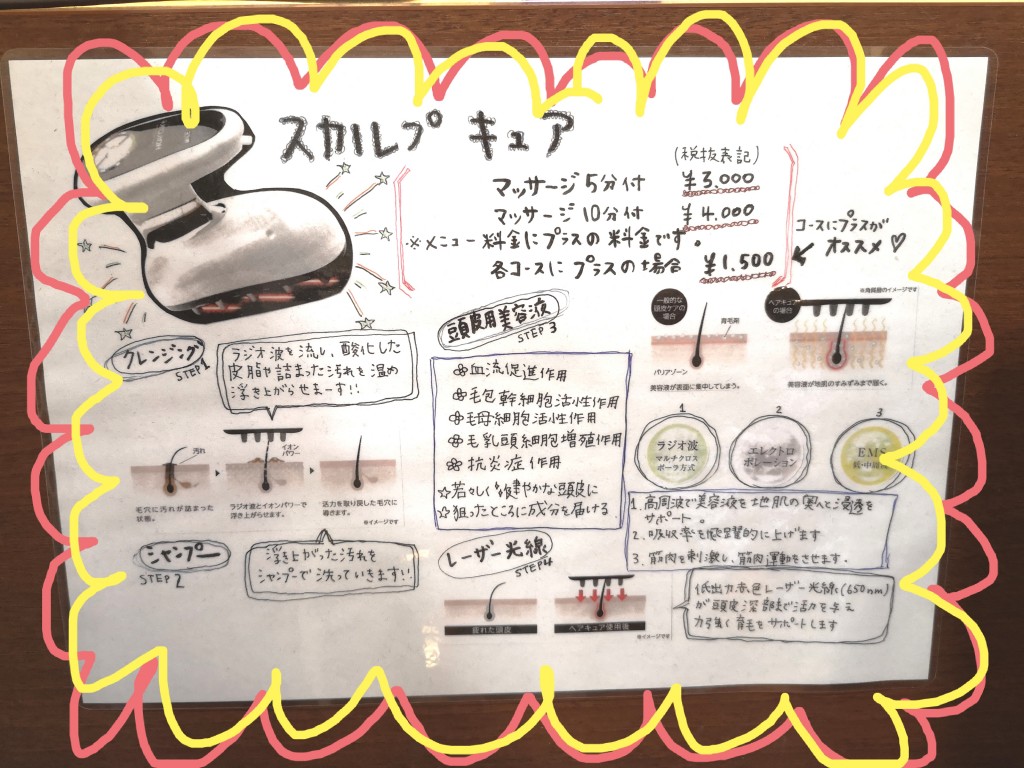 スカルプ キュア
(税抜表記)
マッサージ 5分付 ¥3.000
マッサージ 10分付 ¥4.000
※メニュー料金にプラスの料金です。
各コースにプラスの場合 ¥1.500
コースにプラスが
オススメ♡
クレンジング
STEP1
ラジオ波を流し、酸化した
皮脂や詰まった汚れを温め
浮き上がらせまーす!!
汚れ
イオン
パワー
毛穴に汚れが詰まった
状態。
ラジオ波とイオンパワーで
浮き上がらせます。
活力を取り戻した毛穴に
導きます。
※イメージです
シャンプー
STEP2
浮き上がった汚れを
シャンプーで洗っていきます!!
頭皮用美容液
STEP3
血流促進作用
毛包幹細胞活性作用
毛母細胞活性作用
毛乳頭細胞増殖作用
抗炎症作用
☆若々しく健やかな頭皮に
☆狙ったところに成分を届ける
一般的な
頭皮ケアの
場合
育毛剤
バリアゾーン
美容液が表面に集中してしまう。
ヘアキュア
の場合
※角質層のイメージです
美容液が地肌のすみずみまで届く。
1
ラジオ波
マルチクロス
ポーラ方式
2
エレクトロ
ポレーション
3
EMS
軽・中諧調
1. 高周波で美容液を地肌の奥へと浸透を
サポート。
2. 吸収率を飛躍的に上げます
3. 筋肉を刺激し、筋肉運動をさせます。
レーザー光線
STEP4
疲れた頭皮
ヘアキュア使用後
※イメージです
低出力赤色レーザー光線(650nm)
が頭皮深部まで活力を与え
力強く育毛をサポートします